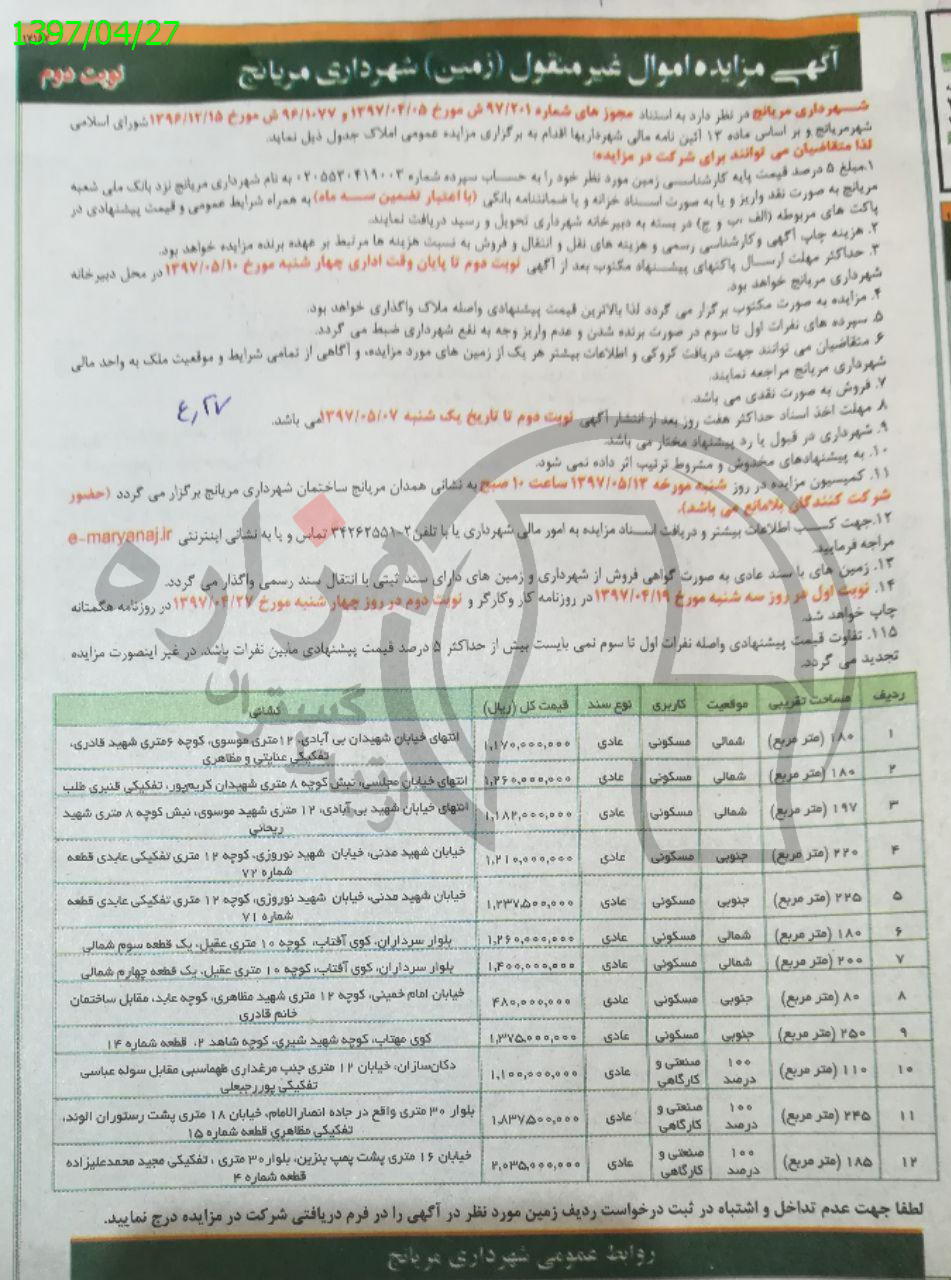 1397/04/27
آگهی مزایده اموال غیر منقول (زمین) شهرداری مریانج
نوبت دوم
شهرداری مریانج در نظر دارد به استناد مجوز های شماره ۹۷/۲۰۱ ش مورخ ۱۳۹۷/۰۴/۰۵ و ۹۶/۱۰۷۷ ش مورخ ۱۳۹۶/۱۲/۱۵ شورای اسلامی
شهر مریانج و بر اساس ماده ۱۳ آئین نامه مالی شهرداریها اقدام به برگزاری مزایده عمومی املاک جدول ذیل نماید.
لذا متقاضیان می توانند برای شرکت در مزایده:
۱.مبلغ ۵ درصد قیمت پایه کارشناسی زمین مورد نظر خود را به حساب سپرده شماره ۰۲۰۵۵۳۰۴۱۹۰۰۳ به نام شهرداری مریانج نزد بانک ملی شعبه
مریانج به صورت نقد واریز و یا به صورت اسناد خزانه و یا ضمانتنامه بانکی (با اعتبار تضمین سه ماه) به همراه شرایط عمومی و قیمت پیشنهادی در
پاکت های مربوطه (الف ،ب و ج) در بسته به دبیرخانه شهرداری تحویل و رسید دریافت نمایند.
۲. هزینه چاپ آگهی وکارشناسی رسمی و هزینه های نقل و انتقال و فروش به نسبت هزینه ها مرتبط بر عهده برنده مزایده خواهد بود.
۳. حداکثر مهلت ارسال پاکتهای پیشنهاد مکتوب بعد از آگهی نوبت دوم تا پایان وقت اداری چهار شنبه مورخ ۱۳۹۷/۰۵/۱۰ در محل دبیرخانه
شهرداری مریانج خواهد بود.
۴. مزایده به صورت مکتوب برگزار می گردد لذا بالاترین قیمت پیشنهادی واصله ملاک واگذاری خواهد بود.
۵. سپرده های نفرات اول تا سوم در صورت برنده شدن و عدم واریز وجه به نفع شهرداری ضبط می گردد.
۶. متقاضیان می توانند جهت دریافت کروکی و اطلاعات بیشتر هر یک از زمین های مورد مزایده، و آگاهی از تمامی شرایط و موقعیت ملک به واحد مالی
شهرداری مریانج مراجعه نمایند.
۷. فروش به صورت نقدی می باشد.
۸. مهلت اخذ اسناد حداکثر هفت روز بعد از انتشار آگهی نوبت دوم تا تاریخ یک شنبه ۱۳۹۷/۰۵/۰۷ می باشد.
۴,۲۷
۹. شهرداری در قبول یا رد پیشنهاد مختار می باشد.
۱۰. به پیشنهادهای مخدوش و مشروط ترتیب اثر داده نمی شود.
۱۱. کمیسیون مزایده در روز شنبه مورخه ۱۳۹۷/۰۵/۱۳ ساعت ۱۰ صبح به نشانی همدان مریانج ساختمان شهرداری مریانج برگزار می گردد (حضور
شرکت کنندگان بلامانع می باشد).
۱۲.جهت کسب اطلاعات بیشتر و دریافت اسناد مزایده به امور مالی شهرداری یا با تلفن ۲-۳۴۲۶۲۵۵۱ تماس و یا به نشانی اینترنتی e-maryanaj.ir
مراجعه فرمایید.
۱۳. زمین های با سند عادی به صورت گواهی فروش از شهرداری و زمین های دارای سند ثبتی با انتقال سند رسمی واگذار می گردد.
۱۴. نوبت اول در روز سه شنبه مورخ ۱۳۹۷/۰۴/۱۹ در روزنامه کار وکارگر و نوبت دوم در روز چهار شنبه مورخ ۱۳۹۷/۰۴/۲۷ در روزنامه هگمتانه
چاپ خواهد شد.
۱۱۵. تفاوت قیمت پیشنهادی واصله نفرات اول تا سوم نمی بایست بیش از حداکثر ۵ درصد قیمت پیشنهادی مابین نفرات باشد. در غیر اینصورت مزایده
تجدید می گردد.
ردیف مساحت تقریبی موقعیت کاربری نوع سند قیمت کل (ریال) نشانی
۱ ۱۸۰ (متر مربع) شمالی مسکونی عادی ۱,۱۷۰,۰۰۰,۰۰۰ انتهای خیابان شهیدان بی آبادی، ۱۲متری موسوی، کوچه ۶متری شهید قادری،
تفکیکی عنایتی و مظاهری
۲ ۱۸۰ (متر مربع) شمالی مسکونی عادی ۱,۲۶۰,۰۰۰,۰۰۰ انتهای خیابان مجلسی، نبش کوچه ۸ متری شهیدان کریم‌پور، تفکیکی قنبری طلب
۳ ۱۹۷ (متر مربع) شمالی مسکونی عادی ۱,۱۸۲,۰۰۰,۰۰۰ انتهای خیابان شهید بی آبادی، ۱۲ متری شهید موسوی، نبش کوچه ۸ متری شهید
ریحانی
۴ ۲۲۰ (متر مربع) جنوبی مسکونی عادی ۱,۲۱۰,۰۰۰,۰۰۰ خیابان شهید مدنی، خیابان شهید نوروزی، کوچه ۱۲ متری تفکیکی عابدی قطعه
شماره ۷۲
۵ ۲۲۵ (متر مربع) جنوبی مسکونی عادی ۱,۲۳۷,۵۰۰,۰۰۰ خیابان شهید مدنی، خیابان شهید نوروزی، کوچه ۱۲ متری تفکیکی عابدی قطعه
شماره ۷۱
۶ ۱۸۰ (متر مربع) شمالی مسکونی عادی ۱,۲۶۰,۰۰۰,۰۰۰ بلوار سرداران، کوی آفتاب، کوچه ۱۰ متری عقیل، یک قطعه سوم شمالی
۷ ۲۰۰ (متر مربع) شمالی مسکونی عادی ۱,۴۰۰,۰۰۰,۰۰۰ بلوار سرداران، کوی آفتاب، کوچه ۱۰ متری عقیل، یک قطعه چهارم شمالی
۸ ۸۰ (متر مربع) جنوبی مسکونی عادی ۴۸۰,۰۰۰,۰۰۰ خیابان امام خمینی، کوچه ۱۲ متری شهید مظاهری، کوچه عابد، مقابل ساختمان
خانم قادری
۹ ۲۵۰ (متر مربع) جنوبی مسکونی عادی ۱,۳۷۵,۰۰۰,۰۰۰ کوی مهتاب، کوچه شهید شیری، کوچه شاهد ۲، قطعه شماره ۱۴
۱۰ ۱۱۰ (متر مربع) ۱۰۰ درصد صنعتی و کارگاهی عادی ۱,۱۰۰,۰۰۰,۰۰۰ دکان‌سازان، خیابان ۱۲ متری جنب مرغداری طهماسبی مقابل سوله عباسی
تفکیکی پوررجبعلی
۱۱ ۲۴۵ (متر مربع) ۱۰۰ درصد صنعتی و کارگاهی عادی ۱,۸۳۷,۵۰۰,۰۰۰ بلوار ۳۰ متری واقع در جاده انصارالامام، خیابان ۱۸ متری پشت رستوران الوند،
تفکیکی مظاهری قطعه شماره ۱۵
۱۲ ۱۸۵ (متر مربع) ۱۰۰ درصد صنعتی و کارگاهی عادی ۲,۰۳۵,۰۰۰,۰۰۰ خیابان ۱۶ متری پشت پمپ بنزین، بلوار۳۰ متری ، تفکیکی مجید محمدعلیزاده
قطعه شماره ۴
لطفا جهت عدم تداخل و اشتباه در ثبت درخواست ردیف زمین مورد نظر در آگهی را در فرم دریافتی شرکت در مزایده درج نمایید.
روابط عمومی شهرداری مریانج
هزاره
گستران